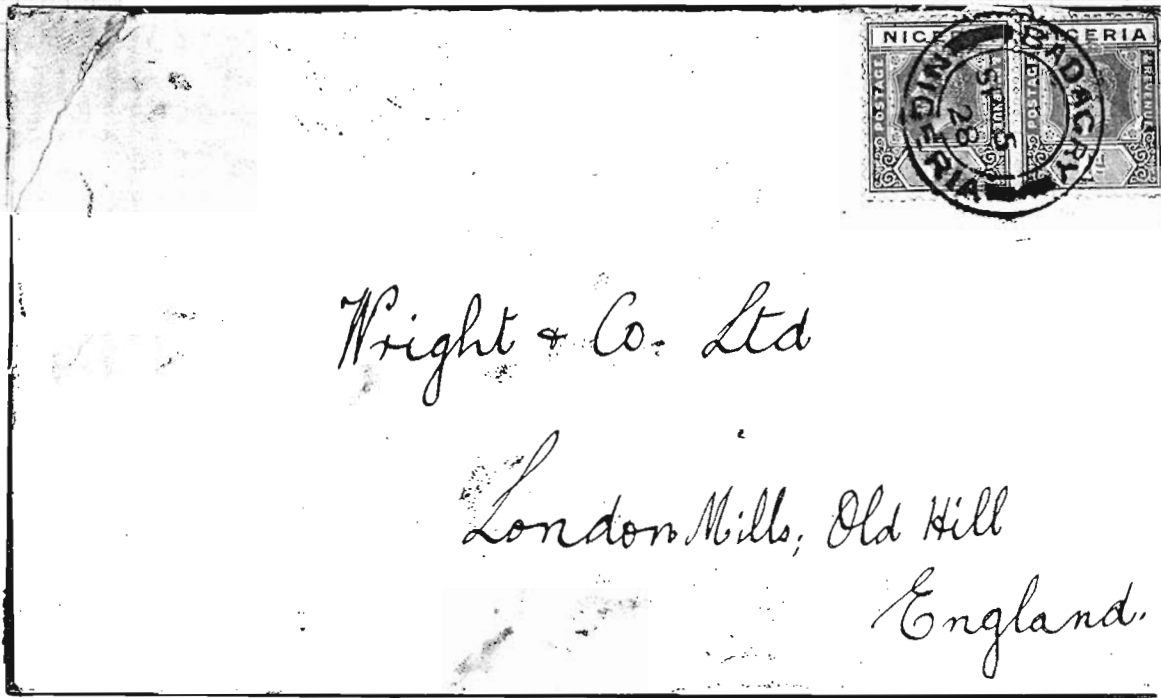 NIGERIA NIGERIA
POSTAGE REVENUE POSTAGE & REVENUE
BADAGRY
SP 5
28
NIGERIA
Wright & Co. Ltd
London Mills, Old Hill
England.